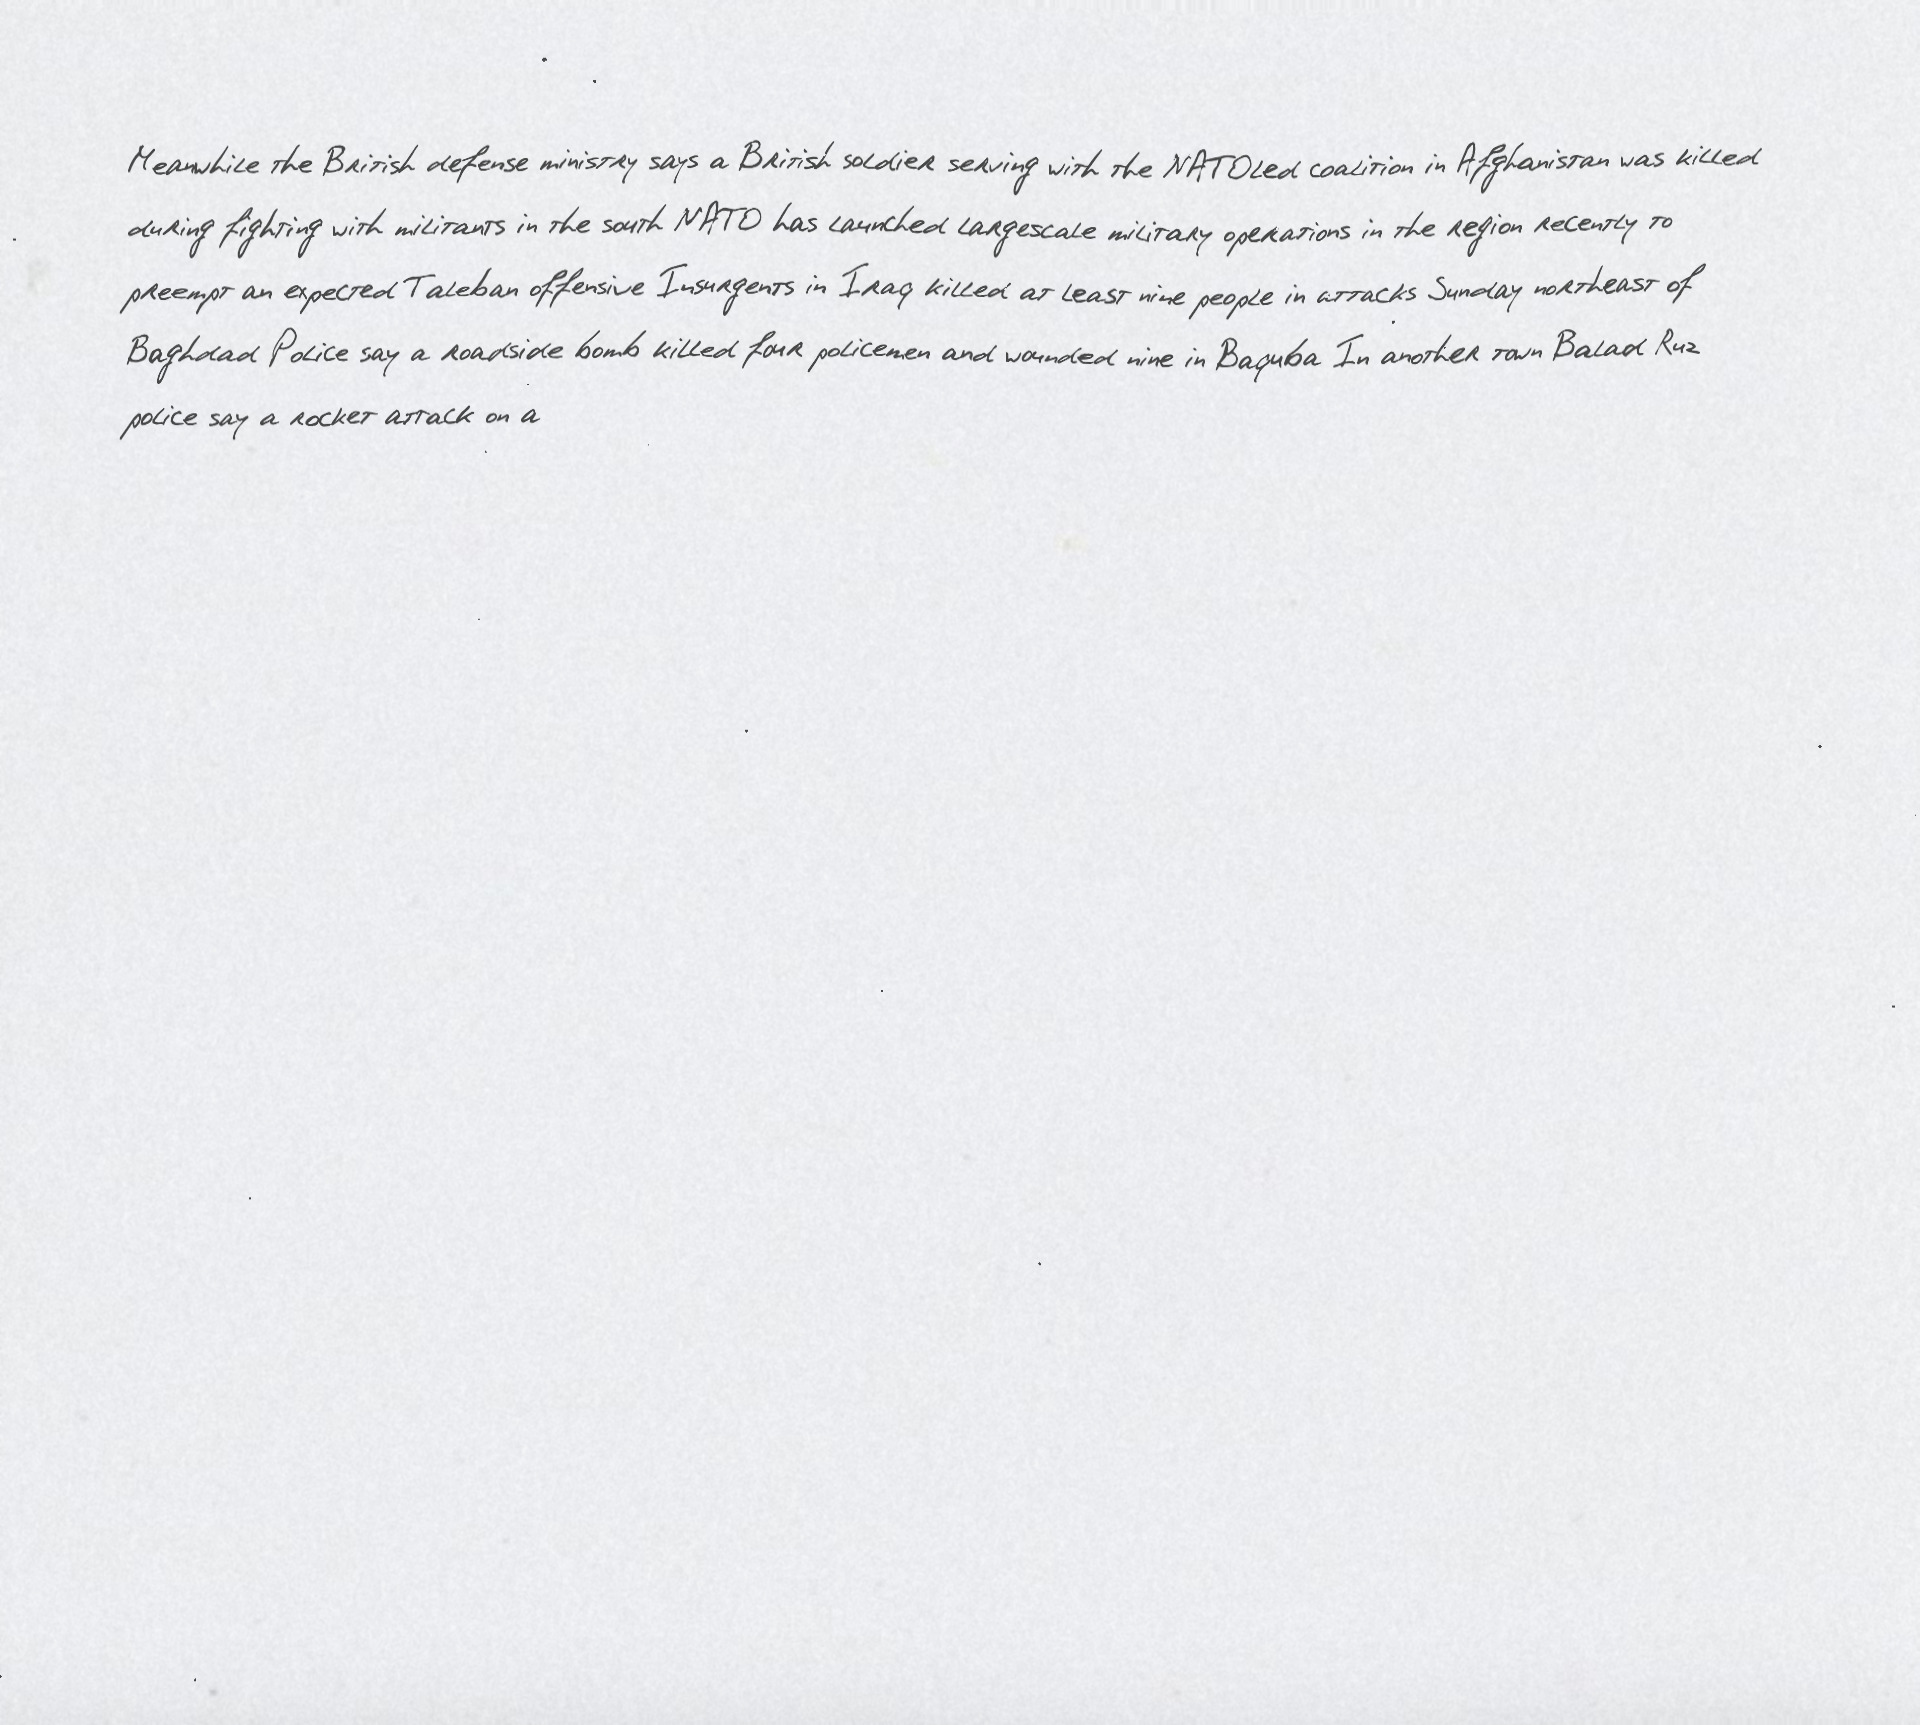 Meanwhile the British defense ministry says a British soldier serving with the NATOled coalition in Afghanistan was killed
during fighting with militants in the south NATO has launched largescale military operations in the region recently to
preempt an expected Taleban offensive Insurgents in Iraq killed at least nine people in attacks Sunday northeast of
Baghdad Police say a roadside bomb killed four policemen and wounded nine in Baquba In another town Balad Ruz
police say a rocket attack on a